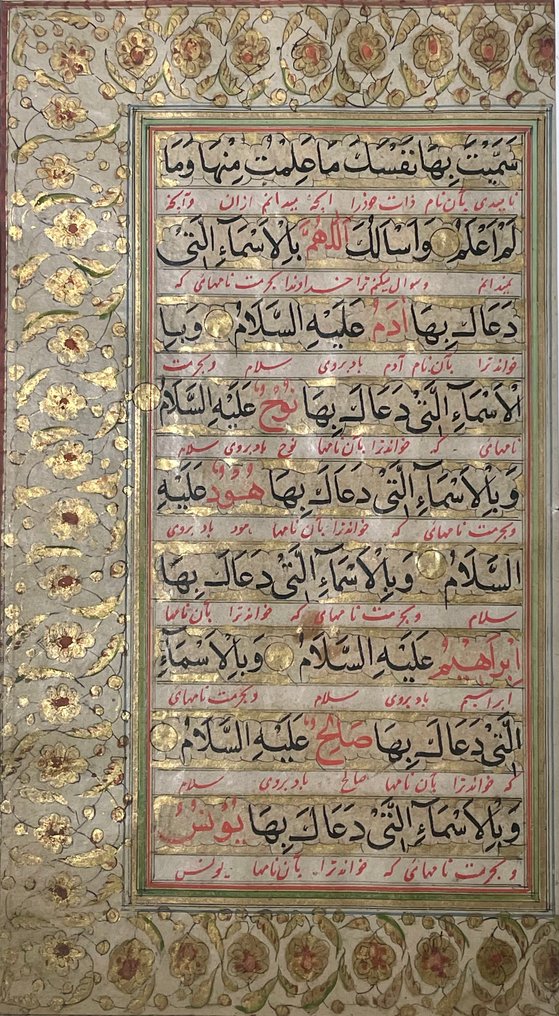 سَمَّيْتَ بِهَا نَفْسَكَ مَا عَلِمْتُ مِنْهَا وَمَا
نامیدی بآن نام ذات خودرا آنچه میدانم ازان وآنچه
لَمْ اَعْلَمْ وَاَسْاَلُكَ اَللّٰهُمَّ بِالْاَسْمَاءِ الَّتِیْ
نمیدانم وسوال میکنم ترا خداوندا بحرمت نامهائی که
دَعَاكَ بِهَا اٰدَمُ عَلَيْهِ السَّلَامُ وَبِا
خواند ترا بآن نام آدم باد بروی سلام وبحرمت
لْاَسْمَاءِ الَّتِیْ دَعَاكَ بِهَا نُوْحٌ عَلَيْهِ السَّلَامُ
نامهای که خواند ترا بآن نامها نوح باد بروی سلام
وَبِالْاَسْمَاءِ الَّتِیْ دَعَاكَ بِهَا هُوْدٌ عَلَيْهِ
وبحرمت نامهائی که خواند ترا بآن نامها هود باد بروی
السَّلَامُ وَبِالْاَسْمَاءِ الَّتِیْ دَعَاكَ بِهَا
سلام وبحرمت نامهای که خواند ترا بآن نامها
اِبْرَاهِيْمُ عَلَيْهِ السَّلَامُ وَبِالْاَسْمَاءِ
ابراهیم باد بروی سلام وبحرمت نامهای
الَّتِیْ دَعَاكَ بِهَا صَالِحٌ عَلَيْهِ السَّلَامُ
که خواند ترا بآن نامها صالح باد بروی سلام
وَبِالْاَسْمَاءِ الَّتِیْ دَعَاكَ بِهَا يُوْنُسُ
وبحرمت نامهائی که خواند ترا بآن نامها یونس